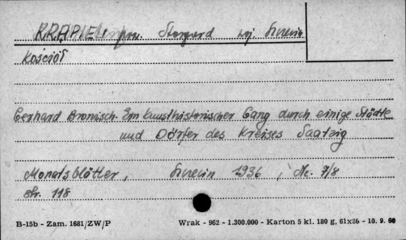 KRĄPIEL pow. Stargard woj. Szczecin
Kościół
Gerhard Bronisch. Ein kunsthistorischer Gang durch einige Städte
und Dörfer des Kreises Saatzig
Monatsblätter, Szczecin 1936, Nr. 7/8
str. 118
B-15b - Zam. 1681/ZW/P Wrak - 962 - 1.300.000 - Karton 5 kl. 180 g, 61x86 - 10. 9. 66